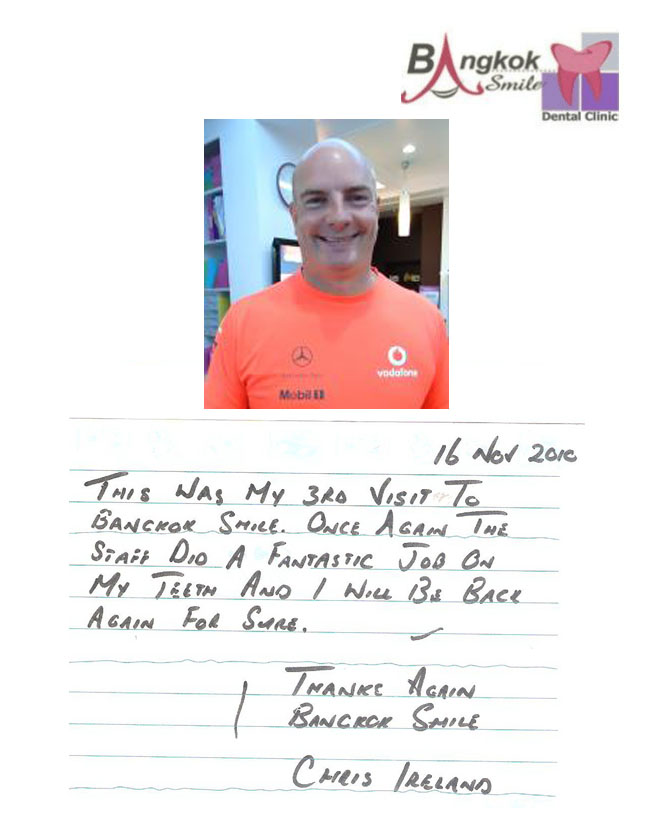 Bangkok
Smile
Dental Clinic
vodafone
Mobil 1
16 Nov 2010
THIS WAS MY 3RD VISIT TO
BANGKOK SMILE. ONCE AGAIN THE
STAFF DID A FANTASTIC JOB ON
MY TEETH AND I WILL BE BACK
AGAIN FOR SURE.
THANKS AGAIN
BANGKOK SMILE
CHRIS IRELAND